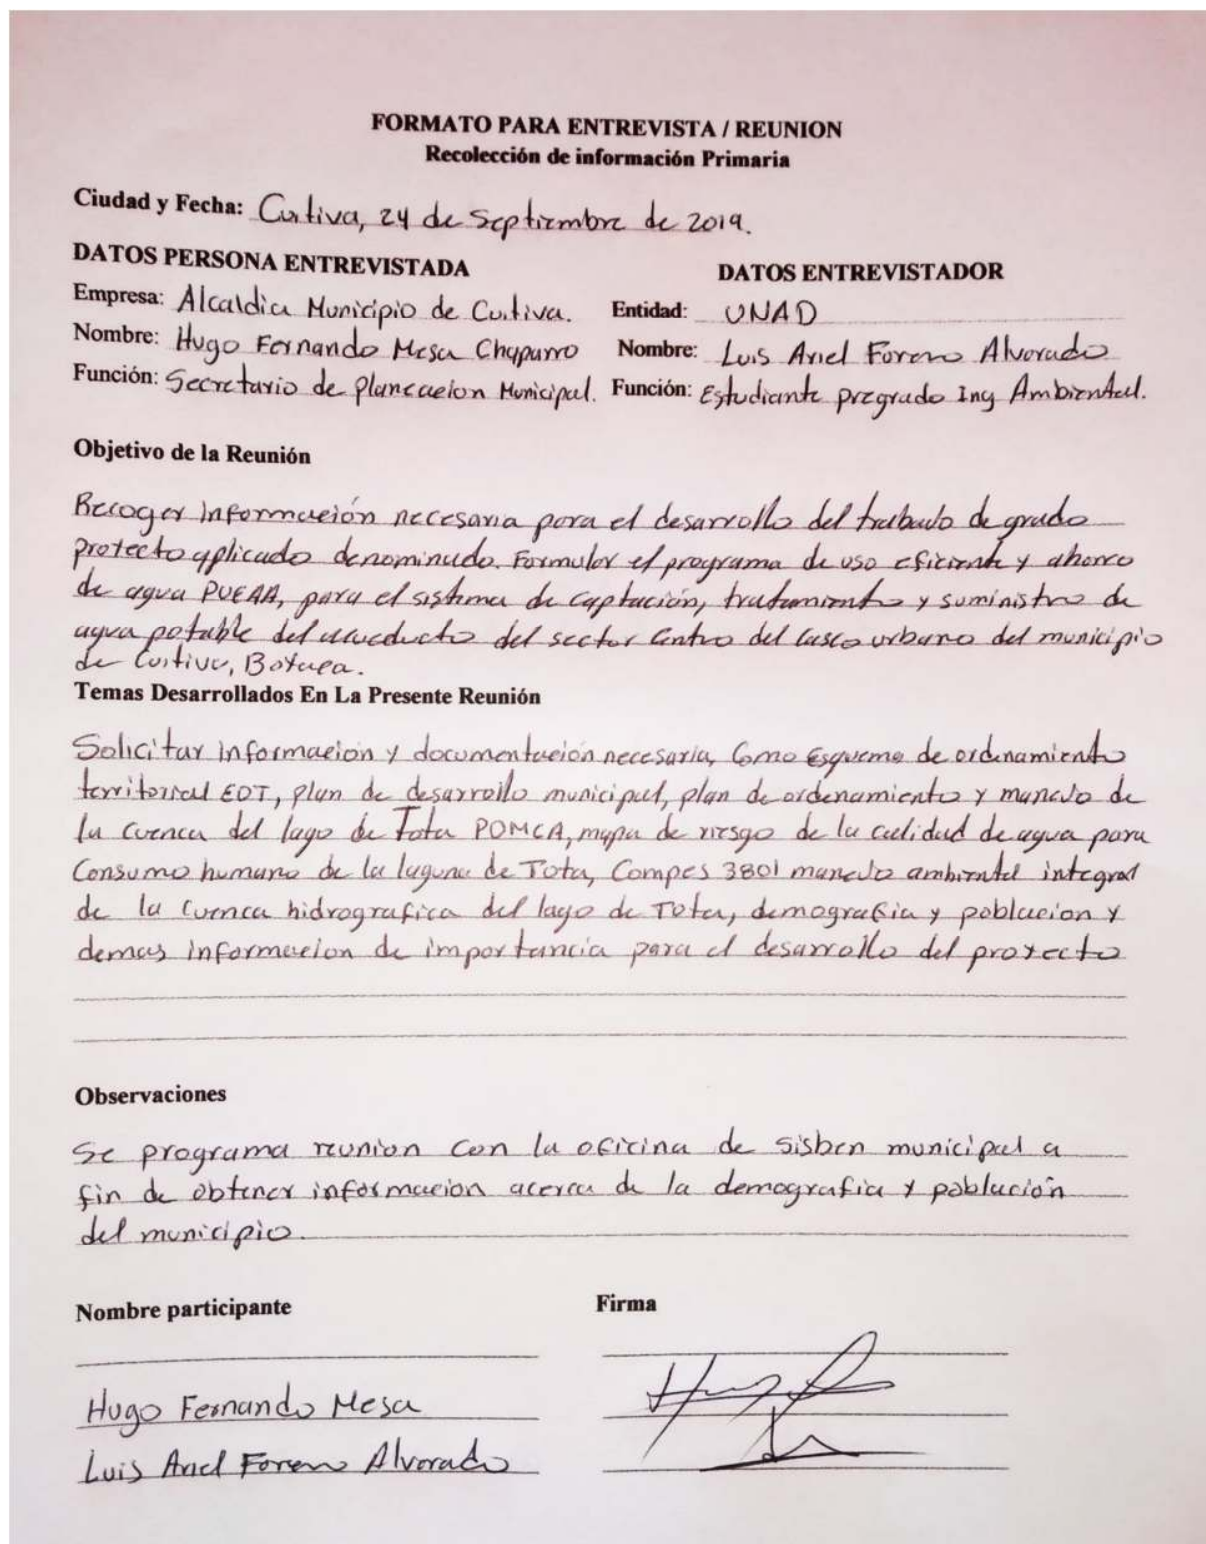 FORMATO PARA ENTREVISTA / REUNION
Recolección de información Primaria
Ciudad y Fecha: Cuitiva, 24 de Septiembre de 2019.
DATOS PERSONA ENTREVISTADA DATOS ENTREVISTADOR
Empresa: Alcaldia Municipio de Cuitiva. Entidad: UNAD
Nombre: Hugo Fernando Mesa Chaparro Nombre: Luis Ariel Forero Alvarado
Función: Secretario de planeacion Municipal. Función: Estudiante pregrado Ing Ambiental.
Objetivo de la Reunión
Recoger información necesaria para el desarrollo del trabado de grado
protecto aplicado denominado. Formular el programa de uso eficiente y ahorro
de agua PUEAA, para el sistema de captación, tratamiento y suministro de
agua potable del acueducto del sector Centro del Casco urbano del municipio
de Cuitiva, Boyaca.
Temas Desarrollados En La Presente Reunión
Solicitar informacion y documentación necesaria, Como Esquema de ordenamiento
territorial EOT, plan de desarrollo municipal, plan de ordenamiento y manejo de
la Cuenca del lago de Tota POMCA, mapa de riesgo de la calidad de agua para
Consumo humano de la laguna de Tota, Compes 3801 manejo ambiental integral
de la Cuenca hidrografica del lago de Tota, demografia y poblacion y
demas informacion de importancia para el desarrollo del protecto
Observaciones
Se programa reunion con la oficina de sisben municipal a
fin de obtener informacion acerca de la demografia y población
del municipio.
Nombre participante Firma
Hugo Fernando Mesa
Luis Ariel Forero Alvarado